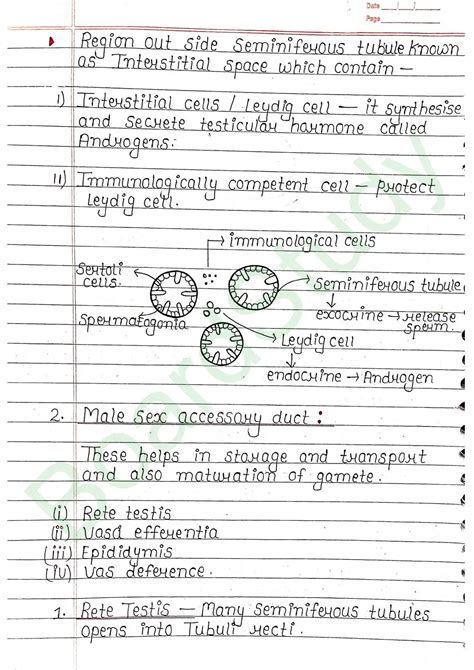 Date __/__/__
Page______
▶ Region out side Seminiferous tubule known
as Interstitial space which contain —
i) Interstitial cells / Leydig cell — it synthesise
and secrete testicular harmone called
Androgens.
II) Immunologically competent cell — protect
leydig cell.
→ immunological cells
Sertoli
cells.
Seminiferous tubule
exocrine → release
sperm.
Spermatogonia
Leydig cell
endocrine → Androgen
2. Male sex accessary duct :
These helps in storage and transport
and also maturation of gamete.
(i) Rete testis
(ii) Vasa efferentia
(iii) Epididymis
(iv) Vas deference.
1. Rete Testis — Many seminiferous tubules
opens into Tubuli recti.
BoardStudy